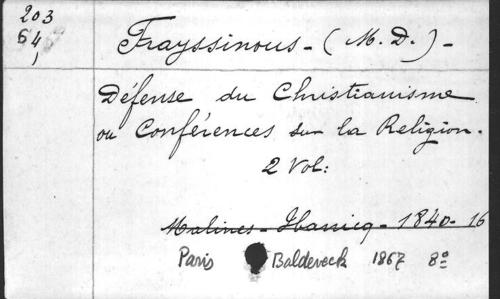 203
54
1
Frayssinous - (M. D.) -
Défense du Christianisme
ou Conférences sur la Religion.
2 Vol:
Malines - Hanicq - 1840 - 16
Paris Baldeveck 1867 8°